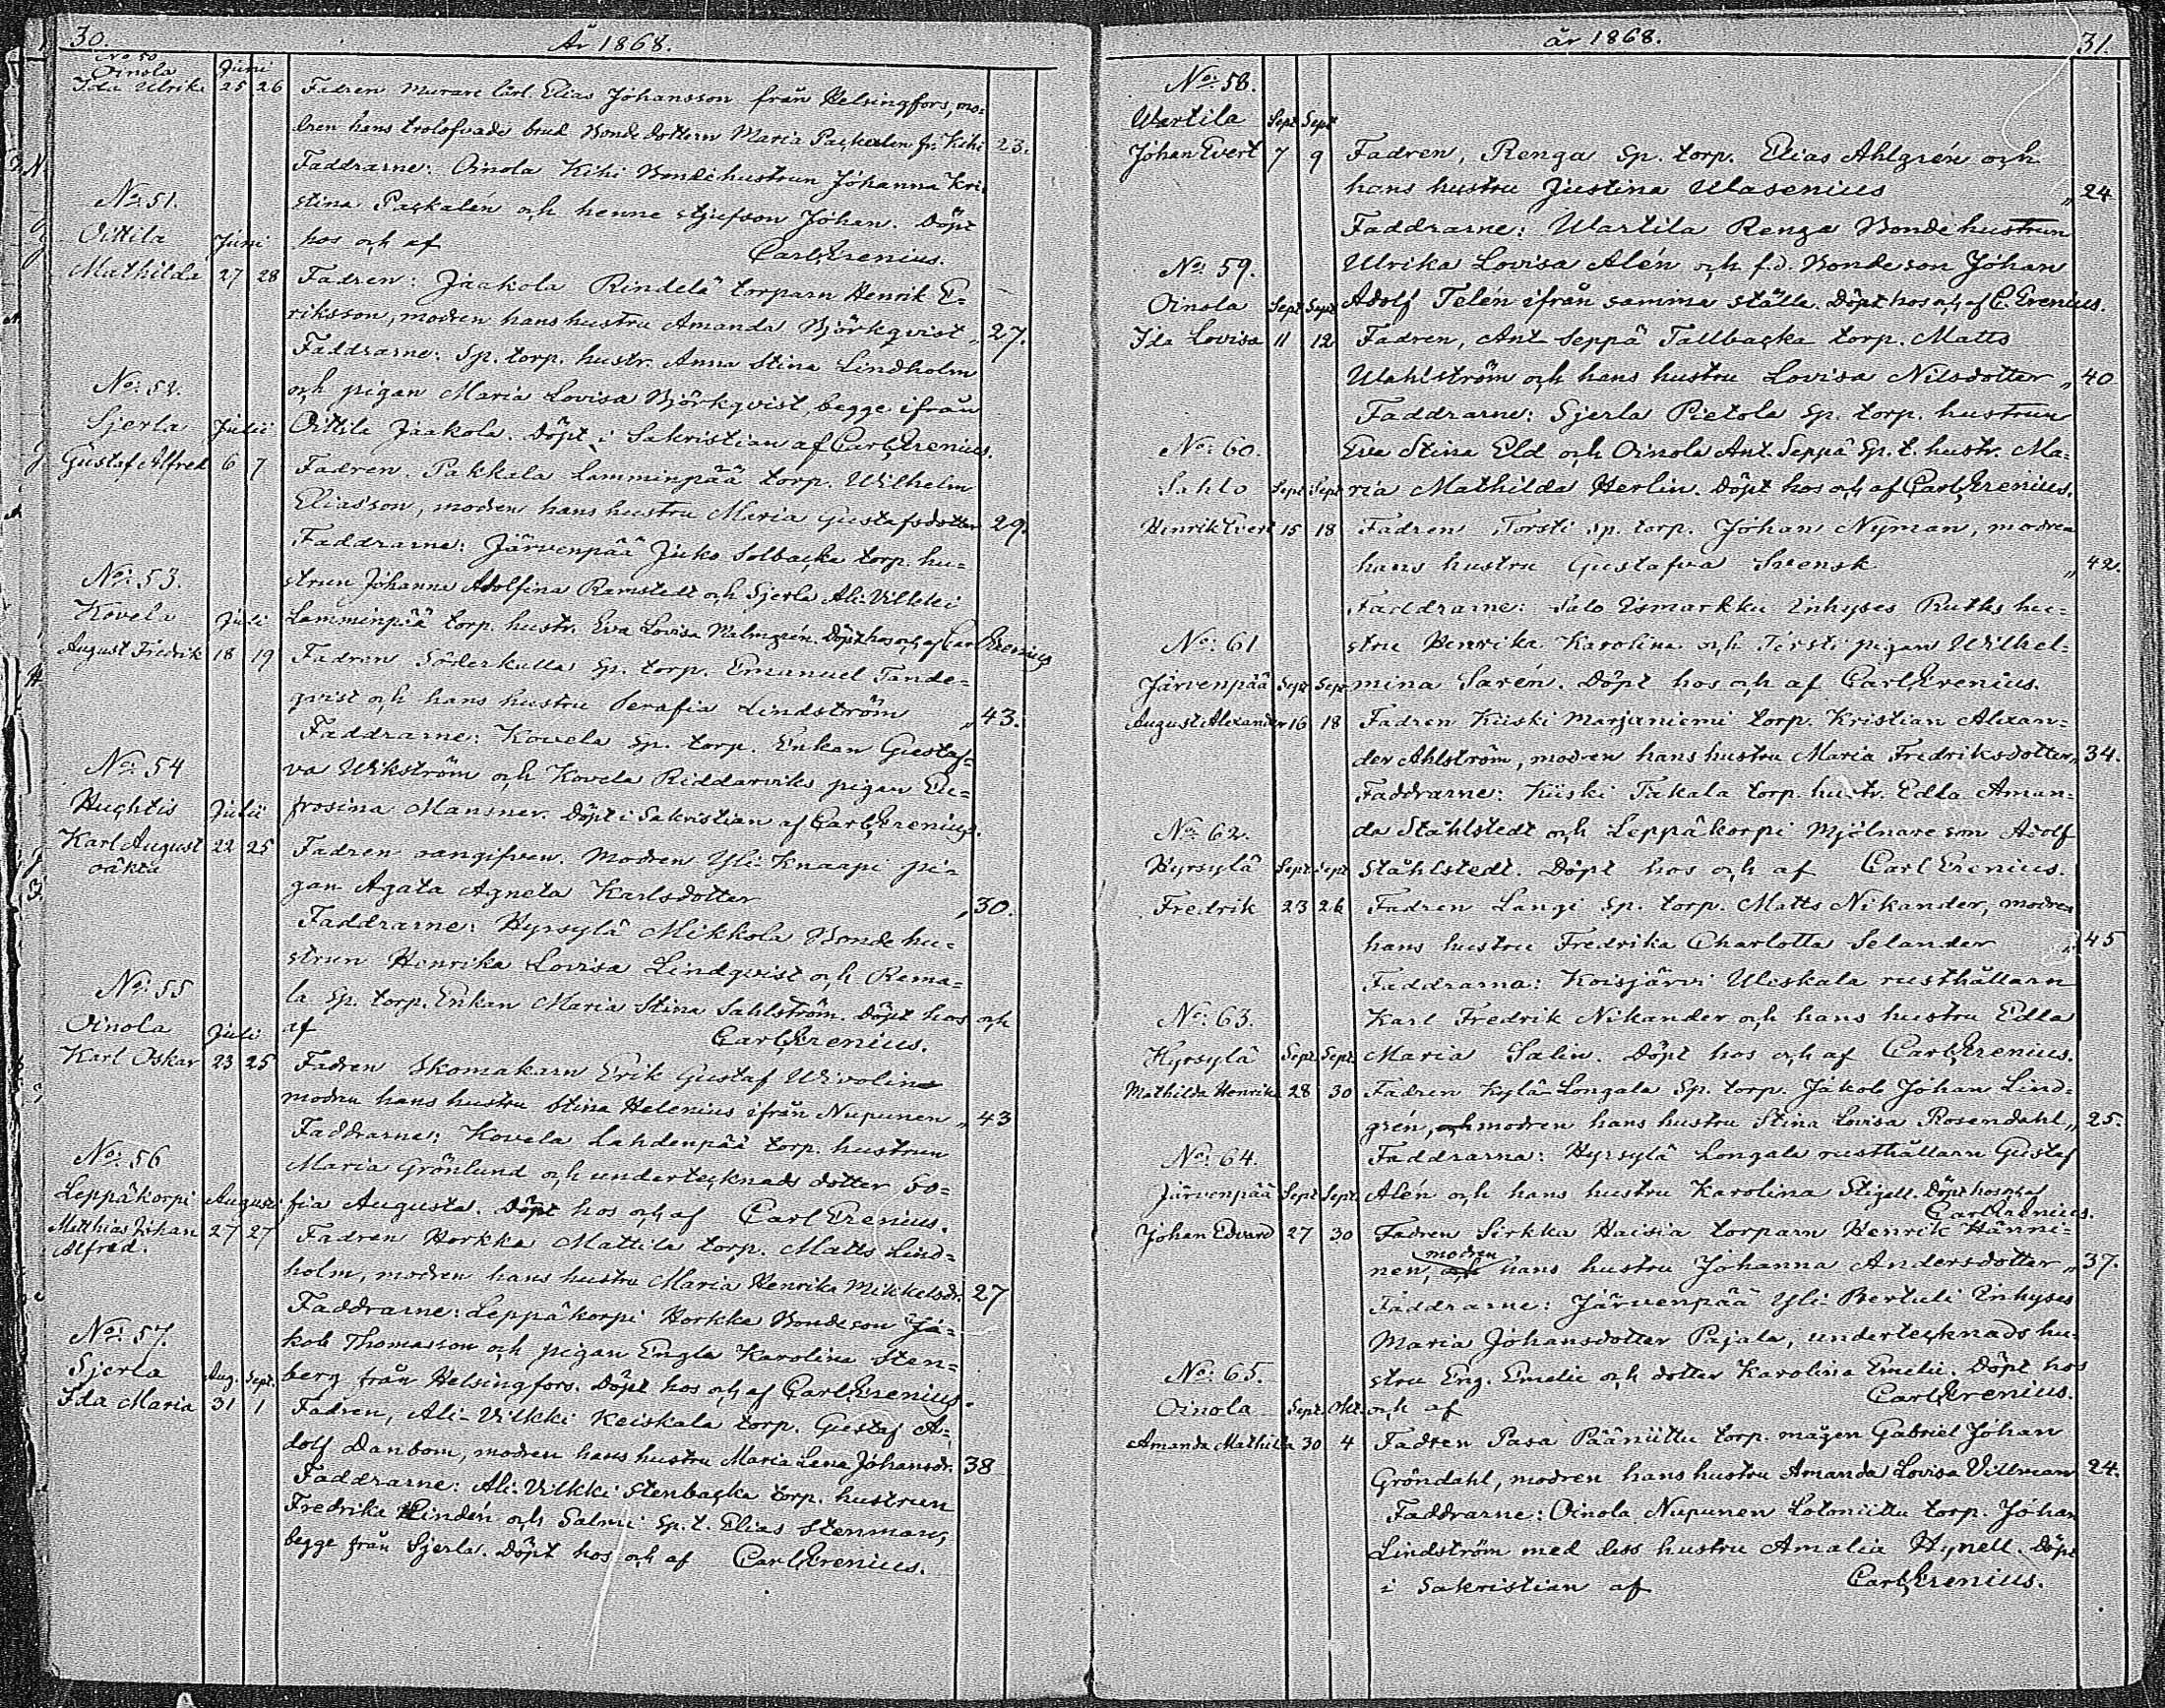 30.
År 1868.
No 50
Oinola Juni
Ida Ulrika 25 26 Fadren murare lärl. Elias Johansson från Helsingfors, mo-
dren hans trolofvade brud Bondedottern Maria Packalén fr. Kihi 23.
Faddrarne: Oinola Kihi Bondehustrun Johanna Kri-
stina Packalén och henne stjufson Johan. Döpt
hos och af Carl Erenius.
No: 51.
Oittila Juni
Mathilda 27 28 Fadren: Jaakola Rindelä torparn Henrik E-
riksson, modren hans hustru Amanda Björkqvist „ 27.
Faddrarne: Sp. torp. hustr. Anna Stina Lindholm
och pigan Maria Lovisa Björkqvist, begge ifrån
Oittila Jaakola. Döpt i Sakristian af Carl Erenius.
No: 52.
Sjerla Julii
Gustaf Alfred 6 7 Fadren Pakkala Lamminpää torp. Wilhelm
Eliasson, modren hans hustru Maria Gustafsdotter 29.
Faddrarne: Järvenpää Juko Solbacka torp. hu-
strun Johanna Adolfina Ramstedt och Sjerla Ali-Vilkki
Lamminpää torp. hustr. Eva Lovisa Malmgrén. Döpt hos och af Carl Erenius
No: 53.
Kovela Juli
August Fredrik 18 19 Fadren Söderkulla Sp. torp. Emanuel Tande-
qvist och hans hustru Serafia Lindström „ 43.
Faddrarne: Kovela Sp. torp. Enkan Gustaf-
va Wikström och Kovela Riddarviks pigan Eu-
frosina Mansner. Döpt i Sakristian af Carl Erenius.
No: 54
Huhtis Julii
Karl August 22 25 Fadren oangifven. Modren Yli-Knaapi pi-
oäkta
gan Agata Agneta Karlsdotter „ 30.
Faddrarne: Hyrsylä Mikkola Bondehu-
strun Henrika Lovisa Lindqvist och Rema-
la Sp. torp. Enkan Maria Stina Sahlström. Döpt hos och
af Carl Erenius.
No: 55
Oinola Juli
Karl Oskar 23 25 Fadren Skomakarn Erik Gustaf Wivolin
modren hans hustru Stina Helenius ifrån Nupunen „ 43
Faddrarne: Kovela Lahdenpää torp. hustrun
Maria Grönlund och undertecknads dotter So-
fia Augusta. Döpt hos och af Carl Erenius.
No: 56
Leppäkorpi Augusti
Matthias Johan 27 27 Fadren Horkka Mattila torp. Matts Lind-
Alfred.
holm, modren hans hustru Maria Henrika Mikkelsdr. 27
Faddrarne: Leppäkorpi Horkka Bondeson Ja-
kob Thomasson och pigan Engla Karolina Sten-
berg från Helsingfors. Döpt hos och af Carl Erenius.
No: 57.
Sjerla Aug. Sept.
Ida Maria 31 1 Fadren, Ali-Vilkki Keiskala torp. Gustaf A-
dolf Danbom, modren hans hustru Maria Lena Johansdr. 38
Faddrarne: Ali-Vilkki Stenbacka torp. hustrun
Fredrika Lindén och Salmi Sp. t. Elias Stenman,
begge från Sjerla. Döpt hos och af Carl Erenius.
år 1868.
31.
No: 58.
Wartila Sept Sept
Johan Evert 7 9 Fadren, Renga Sp. torp. Elias Ahlgrén och
hans hustru Justina Ulasenius „ 24
Faddrarne: Wartila Renga Bondehustrun
Ulrika Lovisa Alén och f.d. Bondeson Johan
Adolf Telén ifrån samma ställe. Döpt hos och af C. Erenius.
No: 59.
Oinola Sept Sept
Ida Lovisa 11 12 Fadren, Ant Seppä Tallbacka torp. Matts
Wahlström och hans hustru Lovisa Nilsdotter „ 40
Faddrarne: Sjerla Pietola Sp. torp. hustrun
Eva Stina Eld och Oinola Ant. Seppä Sp. t. hustr. Ma-
ria Mathilda Herlin. Döpt hos och af Carl Erenius.
No: 60.
Sahlo Sept Sept
Henrik Evert 15 18 Fadren Torsti Sp. torp. Johan Nyman, modren
hans hustru Gustafva Svensk „ 42.
Faddrarne: Salo Ismarkku Inhyses Ruths hu-
stru Henrika Karolina och Torsti pigan Wilhel-
mina Sarén. Döpt hos och af Carl Erenius.
No: 61
Järvenpää Sept Sept
August Alexander 16 18 Fadren Kiiski Marjaniemi torp. Kristian Alexan-
der Ahlström, modren hans hustru Maria Fredriksdotter „ 34.
Faddrarne: Kiiski Takala torp. hustr. Edla Aman-
da Ståhlstedt och Leppäkorpi Mjölnare son Adolf
Ståhlstedt. Döpt hos och af Carl Erenius.
No: 62.
Hyrsylä Sept Sept
Fredrik 23 26 Fadren Langi Sp. torp. Matts Nikander, modren
hans hustru Fredrika Charlotta Selander „ 45
Faddrarna: Koisjärvi Uleskala rusthållarn
Karl Fredrik Nikander och hans hustru Edla
Maria Salin. Döpt hos och af Carl Erenius.
No: 63.
Hyrsylä Sept Sept.
Mathilda Henrika 28 30 Fadren Kylä-Longala Sp. torp. Jakob Johan Lind-
grén, modren hans hustru Stina Lovisa Rosendahl „ 25.
Faddrarna: Hyrsylä Longala rusthållarn Gustaf
Alén och hans hustru Karolina Stigell. Döpt hos och af
Carl Erenius.
No: 64.
Järvenpää Sept Sept.
Johan Edvard 27 30 Fadren Sirkka Haisia torparn Henrik Hänni-
nen, modren hans hustru Johanna Andersdotter „ 37.
Faddrarne: Järvenpää Yli-Bertuli Inhyses
Maria Johansdotter Pajala, undertecknads hu-
stru Eng. Emelie och dotter Karolina Emelie. Döpt hos
och af Carl Erenius.
No: 65.
Oinola Sept. Okt.
Amanda Mathilda 30 4 Fadren Pasa Pääniittu torp. mågen Gabriel Johan
Gröndahl, modren hans hustru Amanda Lovisa Villman 24.
Faddrarne: Oinola Nupunen Lotoniittu torp. Johan
Lindström med dess hustru Amalia Hynell. Döpt
i Sakristian af Carl Erenius.